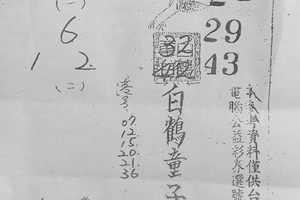 (一)
6
1 2
(二)
29
43
白鶴童子
07.
12.
15.
20.
21.
36
資料僅供台
電腦公益彩券選號